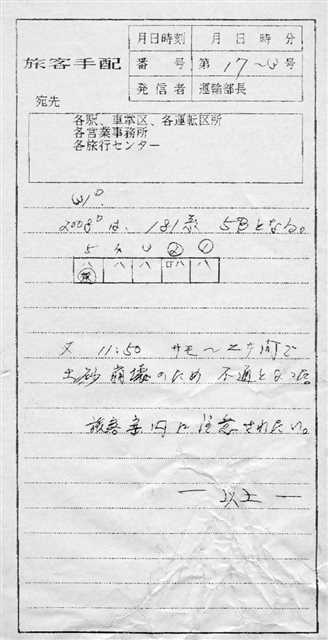 月日時刻 月 日 時 分
旅客手配
番号 第 17〜 号
発信者 運輸部長
宛先
各駅、車掌区、各運転区所
各営業事務所
各旅行センター
2008D は、181系 5Bとなる。
5 4 3 ② ①
ハ ハ ハ ロハ ハ
又 11:50 サモ〜エケ間で
土砂崩壊のため 不通となった
旅客案内に注意されたい。
― 以上 ―